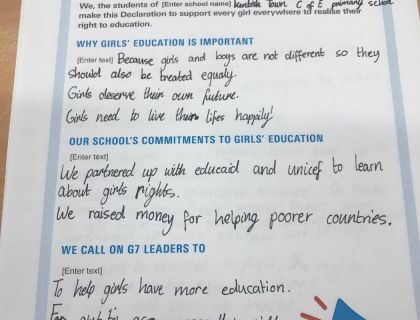 We, the students of [Enter school name] Kentish Town C of E primary school
make this Declaration to support every girl everywhere to realise their
right to education.
WHY GIRLS' EDUCATION IS IMPORTANT
[Enter text] Because girls and boys are not different so they
should also be treated equaly.
Girls deserve their own future.
Girls need to live their lifes happily!
OUR SCHOOL'S COMMITMENTS TO GIRLS' EDUCATION
[Enter text]
We partnered up with educaid and unicef to learn
about girls rights.
We raised money for helping poorer countries.
WE CALL ON G7 LEADERS TO
[Enter text]
To help girls have more education.